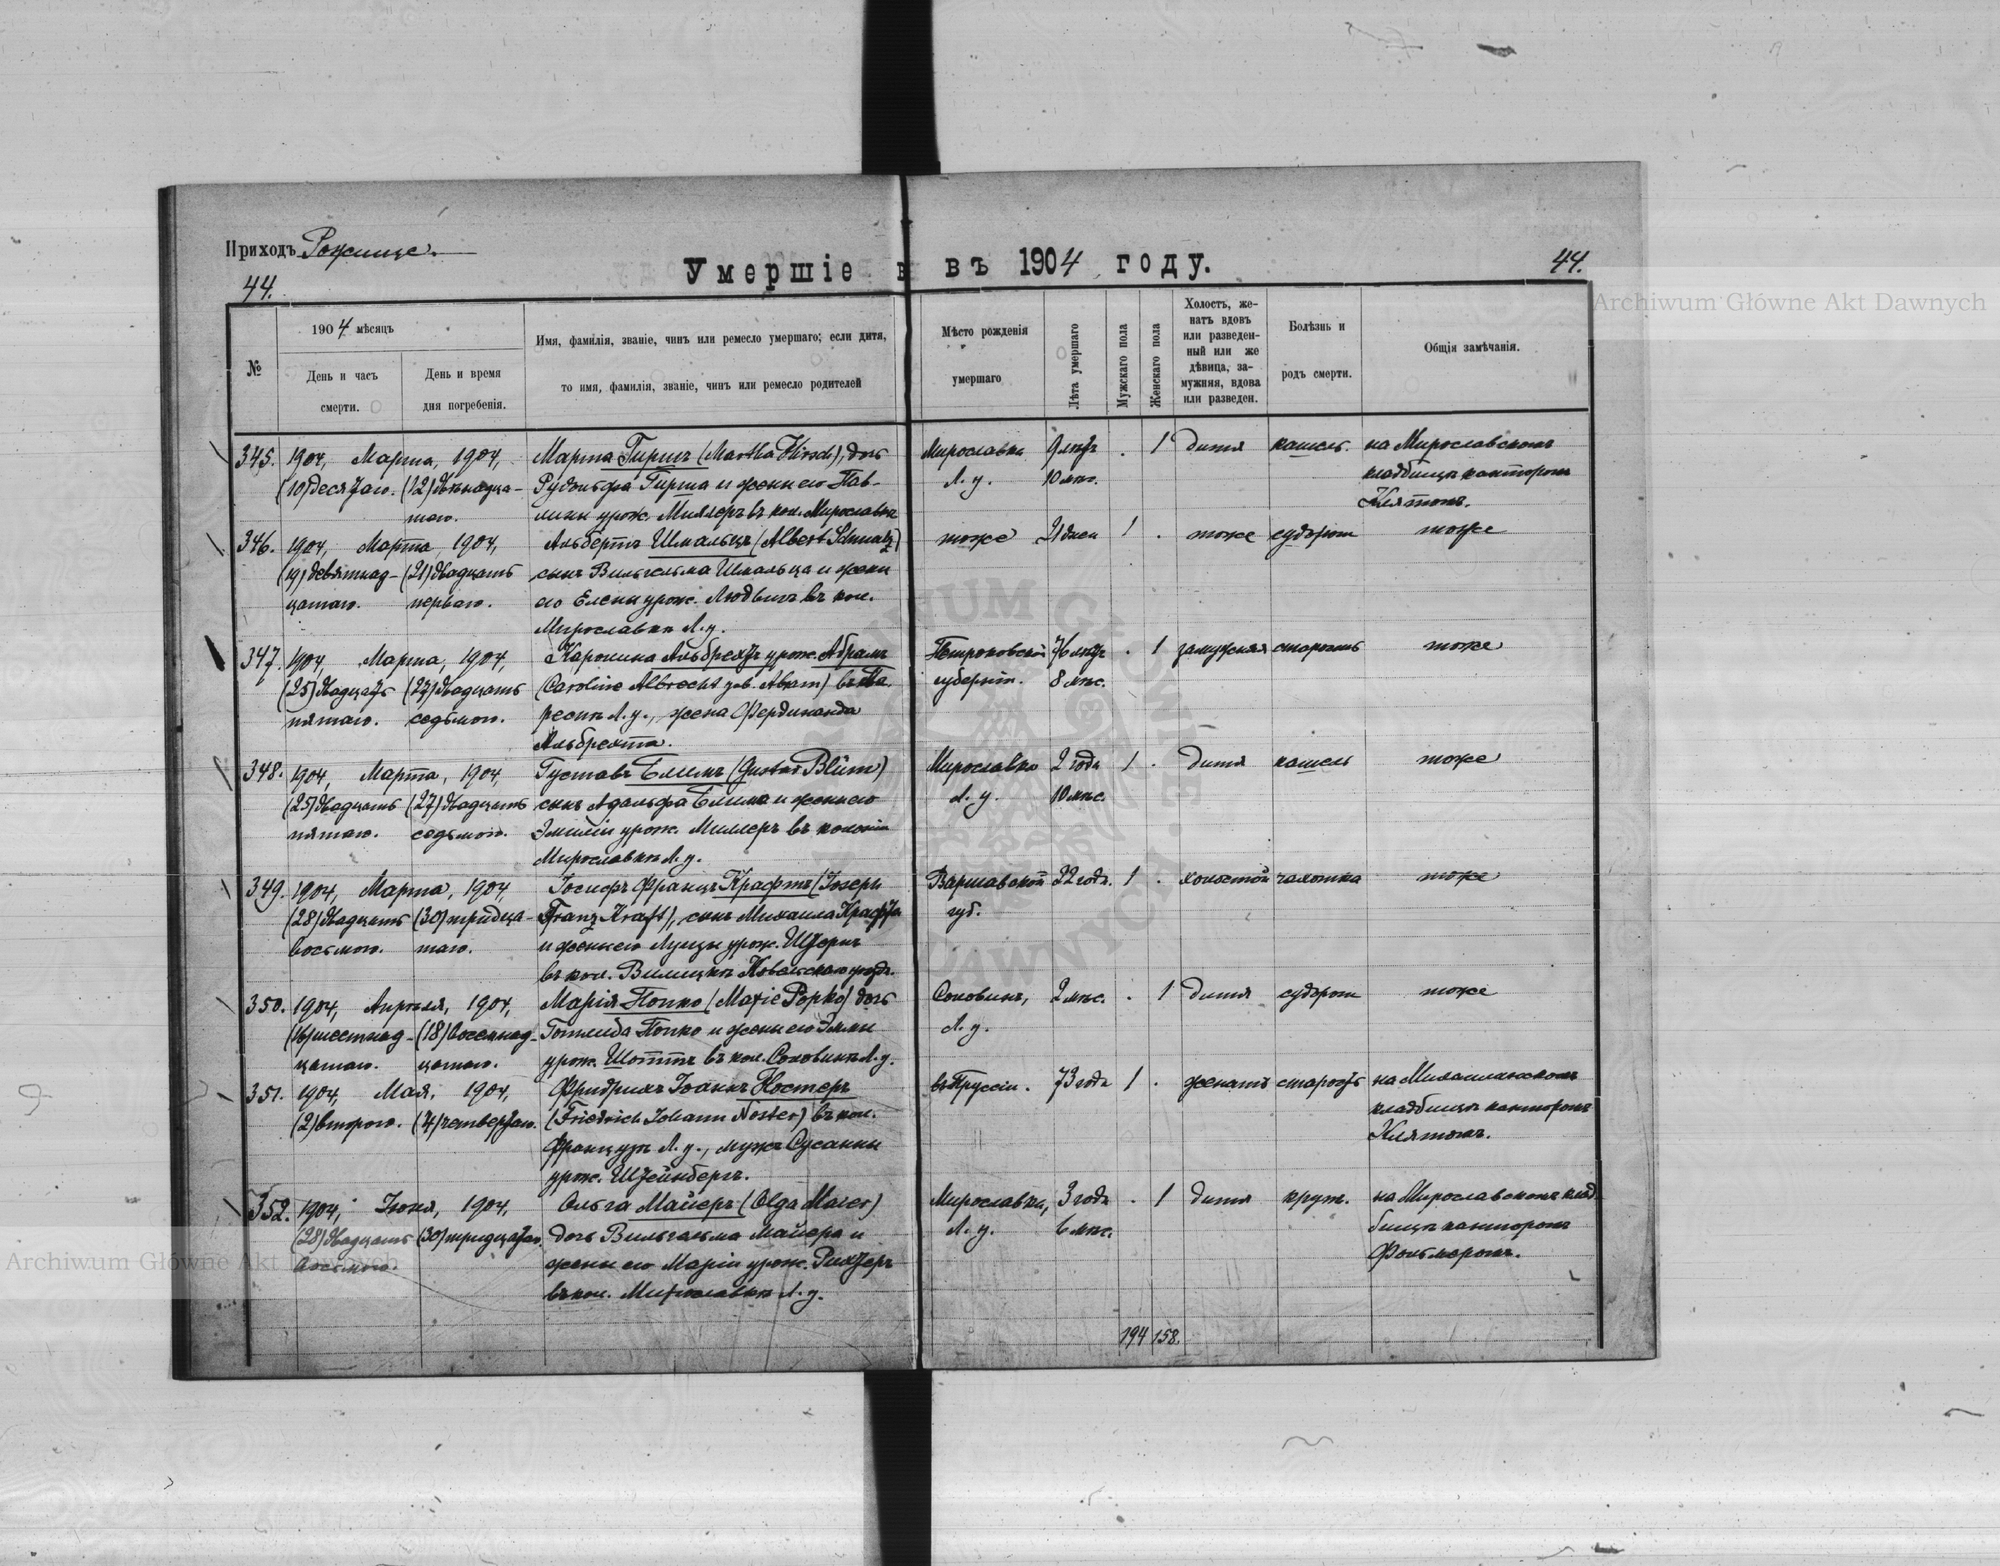 Приходъ Рожище.
Умершіе въ 1904 году.
44.
44.
№
1904 мѣсяцъ
День и часъ смерти.
День и время дня погребенія.
Имя, фамилія, званіе, чинъ или ремесло умершаго; если дитя,
то имя, фамилія, званіе, чинъ или ремесло родителей
Мѣсто рожденія
умершаго
Лѣта умершаго
Мужскаго пола
Женскаго пола
Холостъ, же-
натъ вдовъ
или разведен-
ный или же
дѣвица, за-
мужняя, вдова
или разведен.
Болѣзнь и
родъ смерти.
Общія замѣчанія.
345. 1904, Марта, 1904, Марта Гиршъ (Martha Hirsch), дочь Мирославка 9 лѣтъ . 1 дитя кашель на Мирославскомъ
(10) десятаго. (12) двѣнадца- Рудольфа Гирша и жены его Пав- Л. у. 10 мѣс. кладбищѣ канторомъ
таго. лины урож. Миллеръ въ кол. Мирославкѣ Клятомъ.
346. 1904, Марта, 1904, Альбертъ Шмальцъ (Albert Schmalz) тоже 21 дней 1 . тоже судорги тоже
(19) девятнад- (21) двадцать сынъ Вильгельма Шмальца и жены
цатаго. перваго. его Елены урож. Людвигъ въ кол.
Мирославкѣ Л. у.
347. 1904, Марта, 1904, Каролина Альбрехтъ урож. Абрамъ Петроковской 76 лѣтъ . 1 замужняя старость тоже
(25) двадцать (27) двадцать (Caroline Albrecht geb. Abram) въ губерніи. 8 мѣс.
пятаго. седьмого. Л. у., жена Фердинанда
Альбрехта.
348. 1904, Марта, 1904, Густавъ Блимъ (Gustav Blüm) Мирославка 2 года 1 . дитя кашель тоже
(25) двадцать (27) двадцать сынъ Адольфа Блима и жены его Л. у. 10 мѣс.
пятаго. седьмого. Эмиліи урож. Миллеръ въ колоніи
Мирославкѣ Л. у.
349. 1904, Марта, 1904, Іосифъ Францъ Крафтъ (Joseph Варшавской 22 года. 1 . холостой чахотка тоже
(28) двадцать (30) тридца- Franz Kraft), сынъ Михаила Крафта губ.
восьмого. таго. и жены его Луизы урож.
въ кол.
350. 1904, Апрѣля, 1904, Марія Попко (Marie Popko) дочь Соловинъ, 2 мѣс. . 1 дитя судорги тоже
(16) шестнад- (18) восемнад- Готлиба Попко и жены его Эммы Л. у.
цатаго. цатаго. урож. Шоттъ въ кол. Соловинѣ Л. у.
351. 1904, Мая, 1904, Фридрихъ ІоаннъНостеръ въ Пруссіи. 73 года 1 . женатъ старость на
(2) второго. (4) четвертаго. (Friedrich Johann Noster) въ кол. кладбищѣ канторомъ
Л. у., мужъ Сусанны Клятомъ.
урож. Штейнбергъ.
352. 1904, Іюня, 1904, Ольга Майеръ (Olga Maier) Мирославка, 3 года . 1 дитя крупъ. на Мирославскомъ клад-
(28) двадцать (30) тридцатаго. дочь Вильгельма Майера и Л. у. 6 мѣс. бищѣ канторомъ
восьмого. жены его Маріи урож. Рихтеръ
въ кол. Мирославкѣ Л. у.
194 158.
Archiwum Główne Akt Dawnych
Archiwum Główne Akt Dawnych